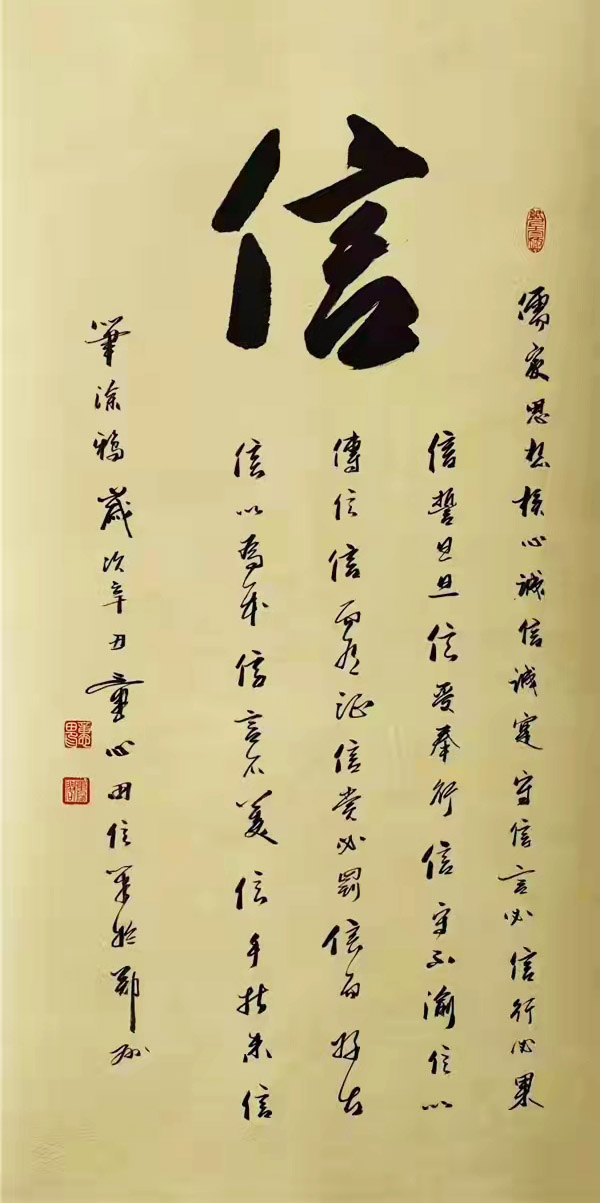 信
儒家思想核心誠信誠寔守信言必信行必果
信誓旦旦信受奉行信守不渝信以
傳信信而有证信赏必罰信而好古
信以為本信言不美信手拈来信
筆涂鸦歲次辛丑童心田信筆於鄭州